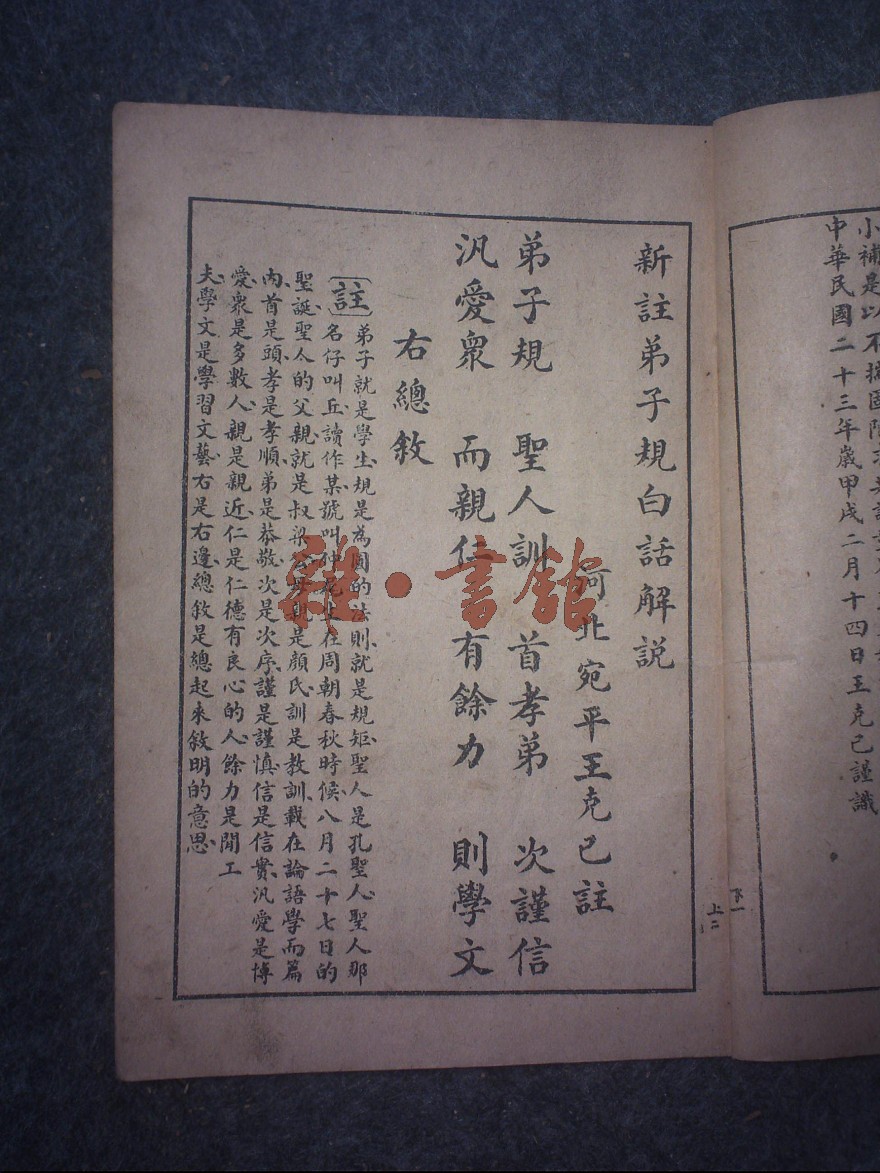 小補是以不
中華民國二十三年歲甲戌二月十四日王克己謹識
新註弟子規白話解説
河北宛平王克己註
弟子規 聖人訓 首孝弟 次謹信
汎愛眾 而親仁 有餘力 則學文
右總敘
註 弟子就是學生規是為圓的法則就是規矩聖人是孔聖人聖人那
名仔叫丘讀作某號叫仲尼生在周朝春秋時候八月二十七日的
聖誕聖人的父親就是叔梁公母親是顏氏訓是教訓載在論語學而篇
內首是頭孝是孝順弟是恭敬次是次序謹是謹慎信是信實汎愛是博
愛眾是多數人親是親近仁是仁德有良心的人餘力是閒工
夫學文是學習文藝右是右邊總敘是總起來敘明的意思
下一
上二
雜·書館